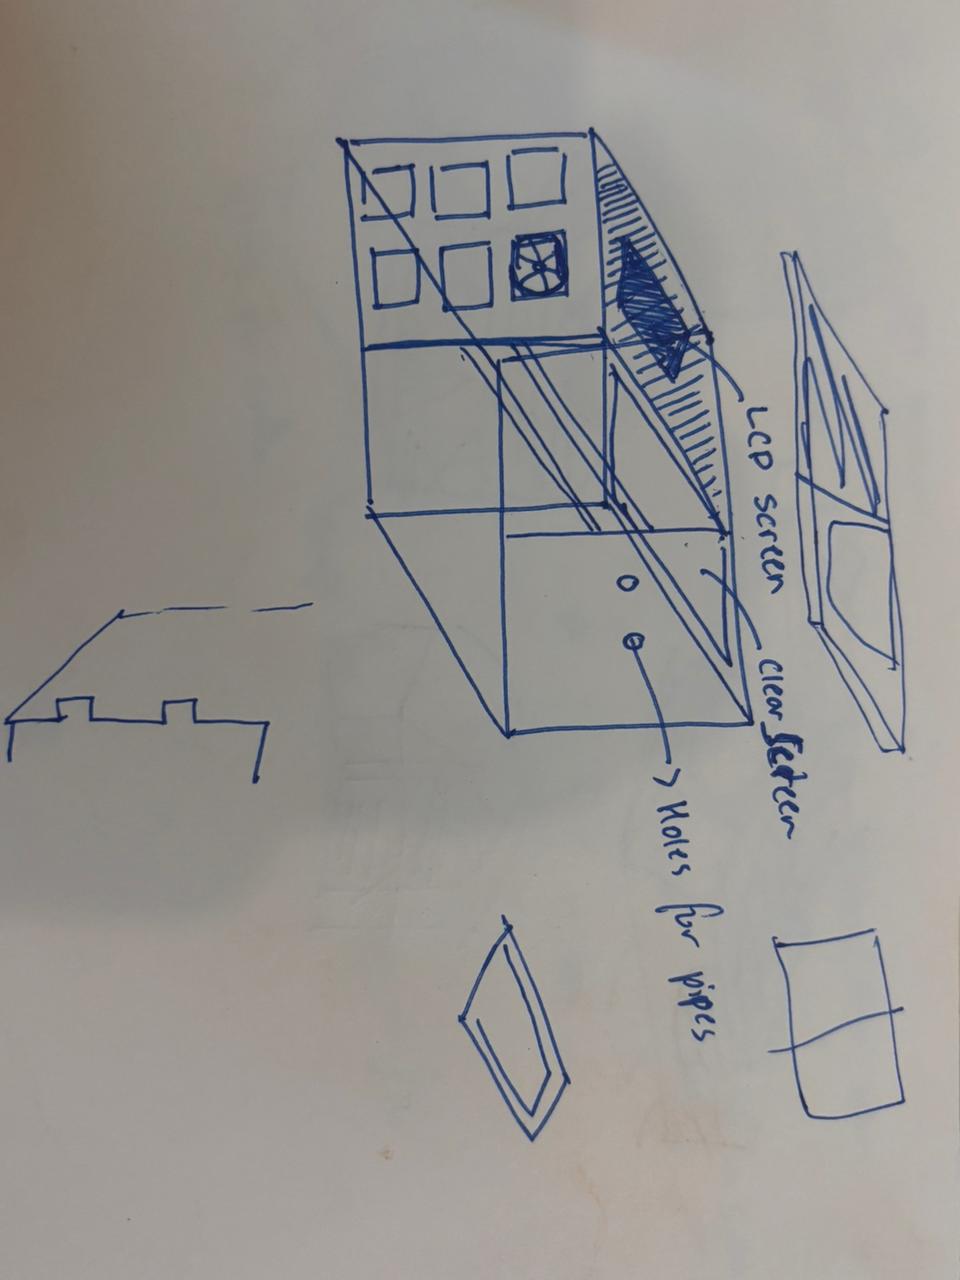 LCD screen
clear screen
Holes for pipes